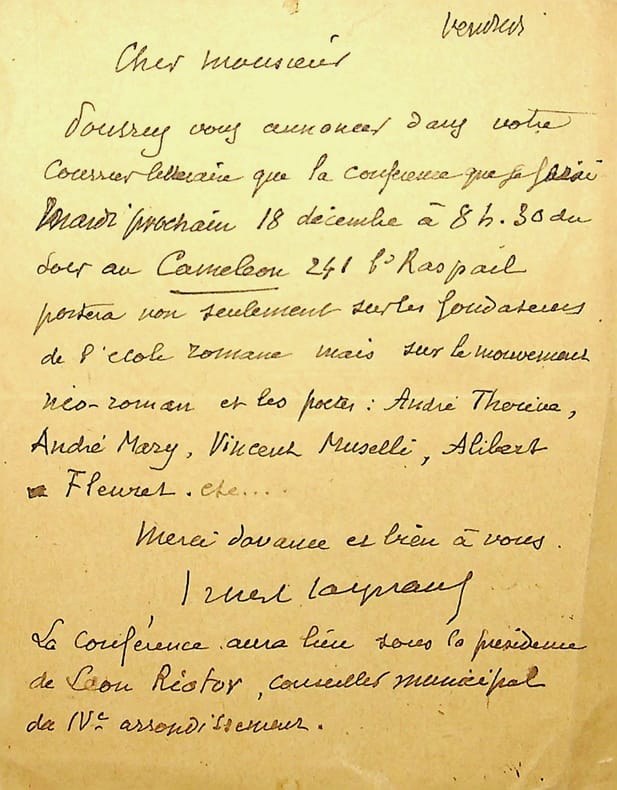 Vendredi
Cher monsieur
Pourriez vous annoncer dans votre
Courrier littéraire que la conférence que je ferai
Mardi prochain 18 décembre à 8 h. 30 du
soir au Cameleon 241 bd Raspail
portera non seulement sur les fondateurs
de l'école romane mais sur le mouvement
néo-roman et les poetes : André Therive,
André Mary, Vincent Muselli, Alibert
Fleuret. etc....
Merci d'avance et bien à vous.
Ernest Raynaud
La conférence aura lieu sous la présidence
de Leon Riotor, conseiller municipal
du IVe arrondissement.